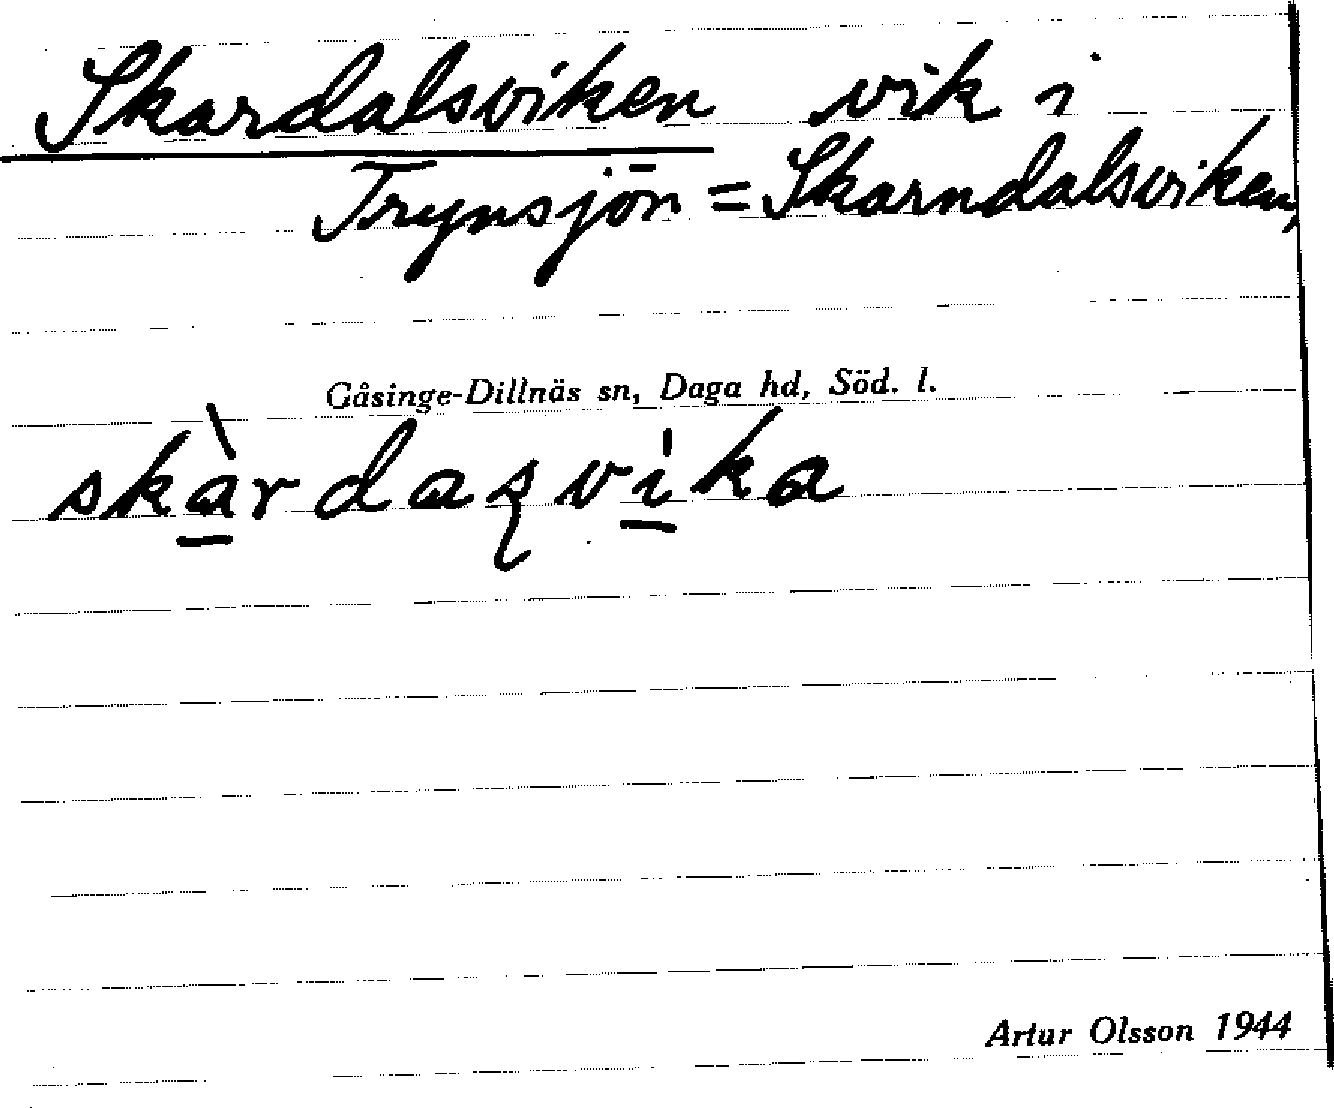 Skardalsviken vik i
Trynsjön = Skarndalsviken,
Gåsinge-Dillnäs sn, Daga hd, Söd. l.
skà̱rdaʂvi̱ka
Artur Olsson 1944